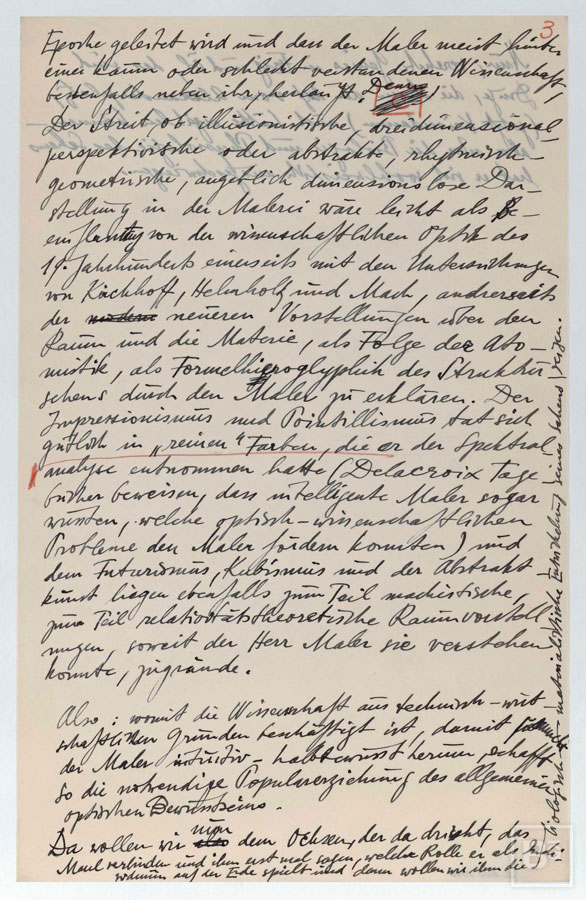 3
Epoche geleistet wird und dass der Maler meist hinter
einer kaum oder schlecht verstandenen Wissenschaft,
bestenfalls neben ihr, herläuft.
Der Streit, ob illusionistische, dreidimensional-
perspektivische oder abstrakte, rhytmisch-
geometrische, angeblich dimensionslose Dar-
stellung in der Malerei wäre leicht als Be-
einflussung von der wissenschaftlichen Optik des
19. Jahrhunderts einerseits mit den Untersuchungen
von Kirchhoff, Helmholtz und Mach, andrerseits
der neueren Vorstellungen über den
Raum und die Materie, als Folge der Ato-
mistik, als Formelhieroglyphik des Struktur-
sehens durch den Maler zu erklären. Der
Impressionismus und Pointillismus tat sich
gütlich in „reinen" Farben, die er der Spektral
analyse entnommen hatte (Delacroix Tage-
bücher beweisen, dass intelligente Maler sogar
wussten, welche optisch-wissenschaftlichen
Probleme den Maler fördern konnten) und
dem Futurismus, Kubismus und der Abstrakt
kunst liegen ebenfalls zum Teil machistische,
zum Teil relativitätstheoretische Raumvorstell
ungen, soweit der Herr Maler sie verstehen
konnte, zugrunde.
Also: womit die Wissenschaft aus technisch-wirt
schaftlichen Gründen beschäftigt ist, damit
der Maler intuitiv-halbbewusst herum, schafft
so die notwendige Popularerziehung des allgemeinen
optischen Bewusstseins.
Da wollen wir nun dem Ochsen, der da drischt, das
Maul verbinden und ihm erst mal sagen, welche Rolle er als
auf der Erde spielt und dann wollen wir ihm die
biologisch-materialistische Entwickelung seines Sehens zeigen.